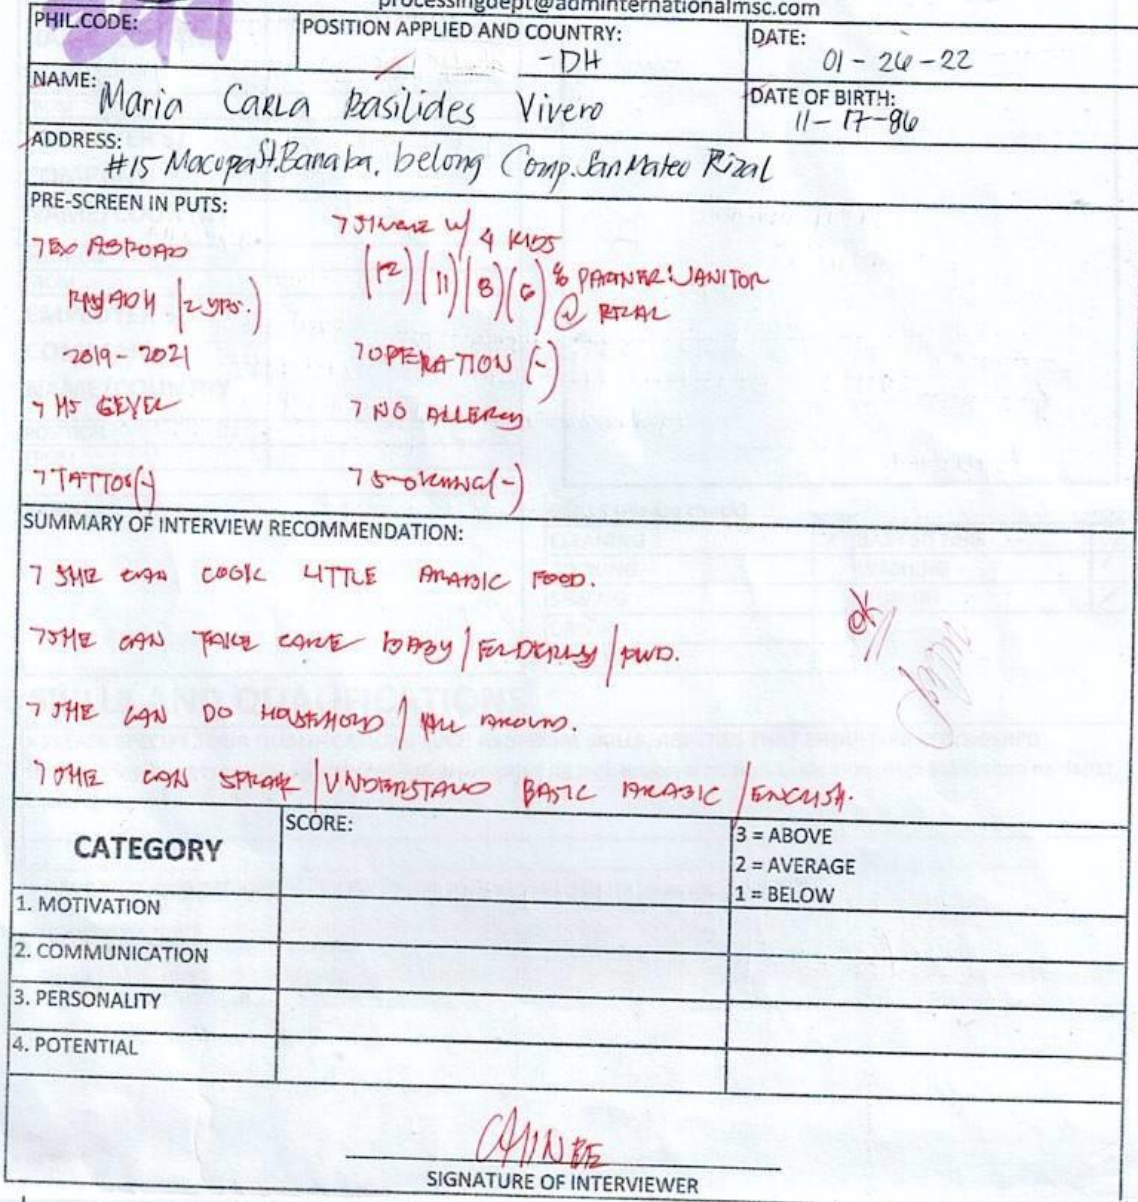 processingdept@adminternationalmsc.com
PHIL.CODE:
POSITION APPLIED AND COUNTRY:
- DH
DATE:
01-26-22
NAME: Maria Carla Basilides Vivero
DATE OF BIRTH:
11-17-86
ADDRESS:
#15 Macopa St. Banaba, belong Comp. San Mateo Rizal
PRE-SCREEN IN PUTS:
7 EX ABROAD
RIYADH (2 YRS.)
2019-2021
7 HS LEVEL
7 TATTOO (-)
7 SINGLE W/ 4 KIDS
(12) (11) (8) (6) & PARTNER: JANITOR
@ RIZAL
7 OPERATION (-)
7 NO ALLERGY
7 SMOKING (-)
SUMMARY OF INTERVIEW RECOMMENDATION:
7 SHE CAN COOK LITTLE ARABIC FOOD.
7 SHE CAN TAKE CARE BABY / ELDERLY / PWD.
7 SHE CAN DO HOUSEHOLD / ALL AROUND.
7 SHE CAN SPEAK / UNDERSTAND BASIC ARABIC / ENGLISH.
OK
CATEGORY
SCORE:
3 = ABOVE
2 = AVERAGE
1 = BELOW
1. MOTIVATION
2. COMMUNICATION
3. PERSONALITY
4. POTENTIAL
SIGNATURE OF INTERVIEWER